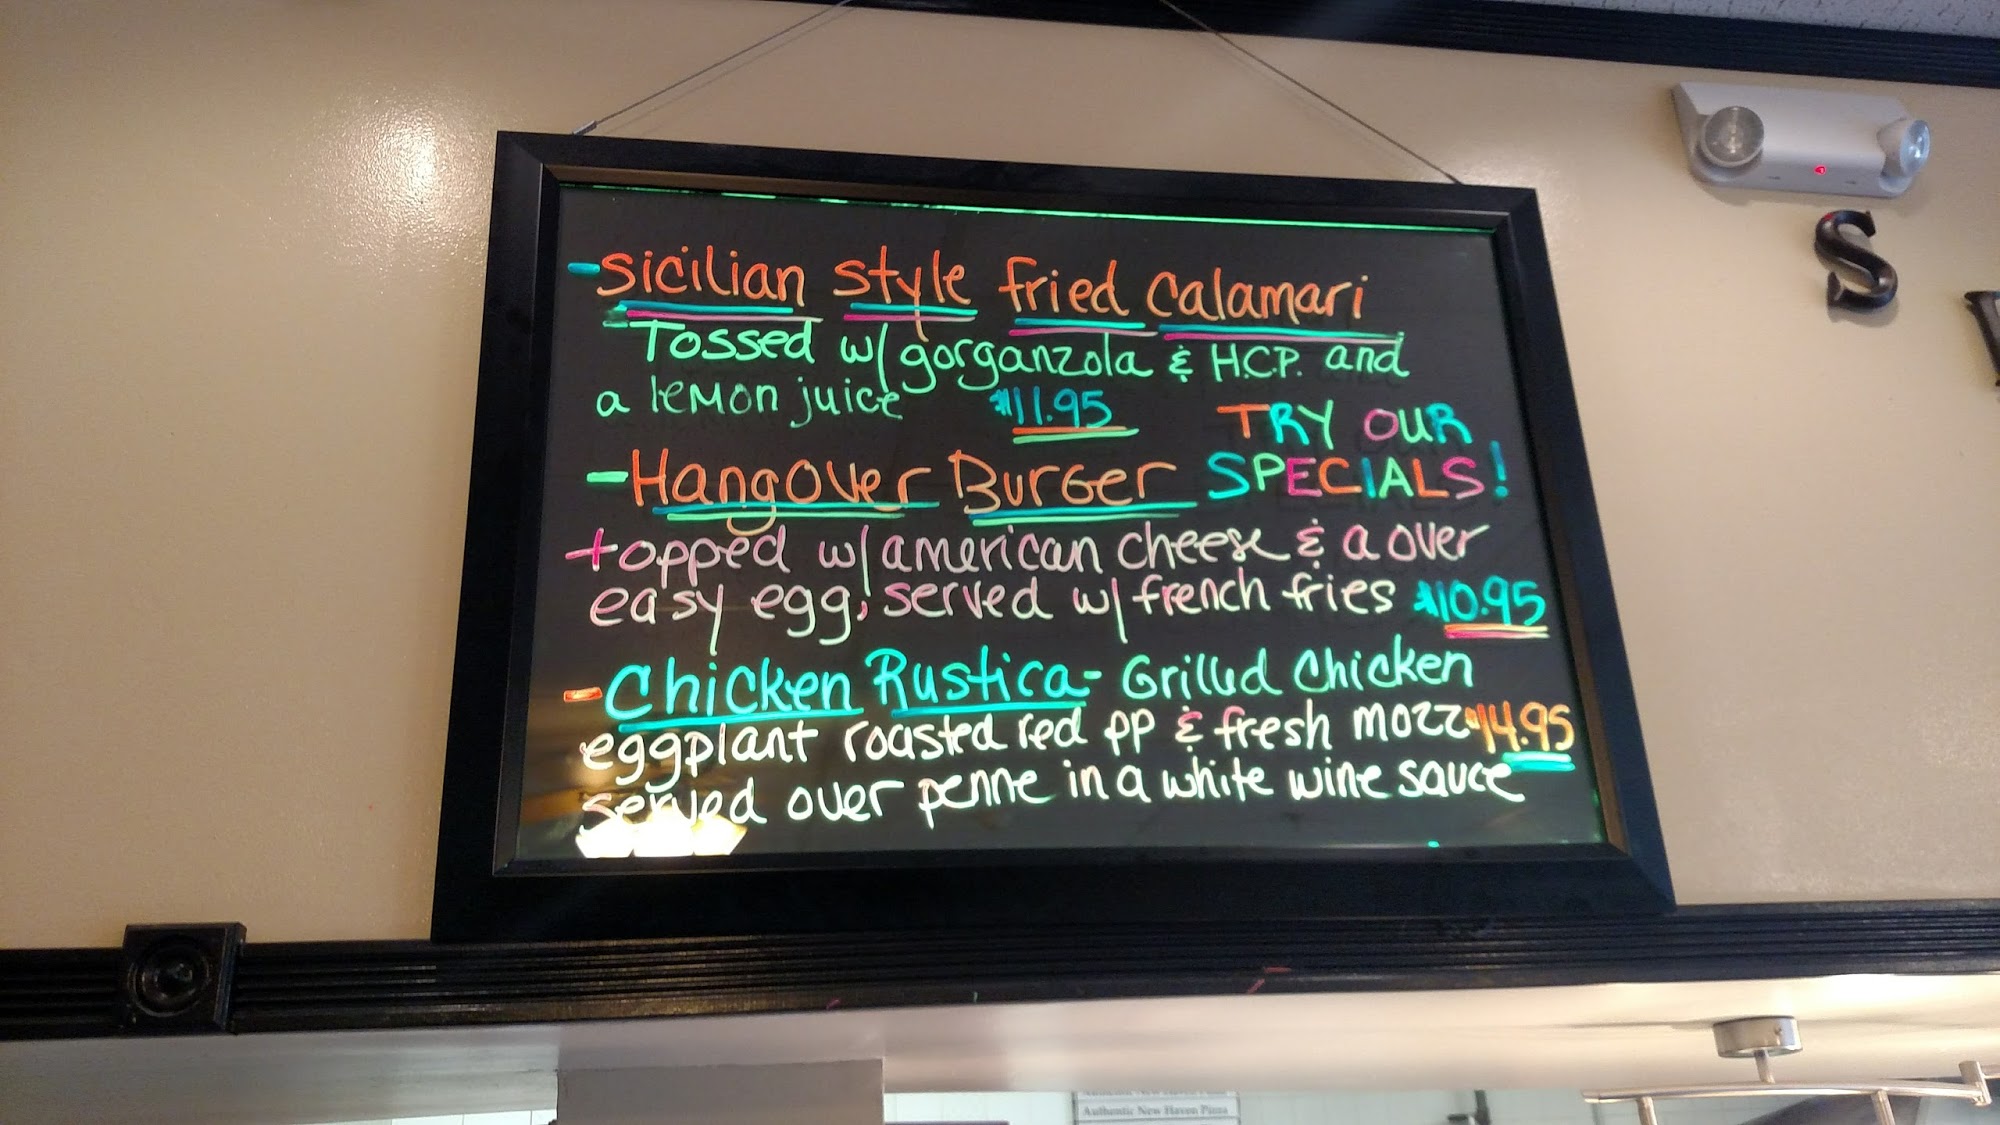 -Sicilian Style Fried Calamari
Tossed w/ gorganzola & H.C.P. and
a lemon juice $11.95
TRY OUR
SPECIALS!
-Hangover Burger
topped w/ american cheese & a over
easy egg, served w/ french fries $10.95
-Chicken Rustica- Grilled Chicken
eggplant roasted red pp & fresh mozz $14.95
served over penne in a white wine sauce
S
Authentic New Haven Pizza